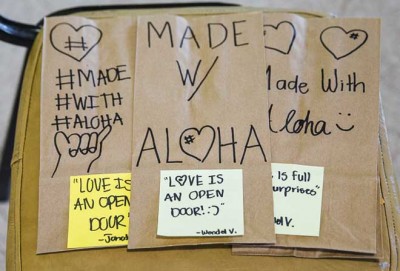 #
#MADE
#WITH
#ALOHA
"LOVE IS
AN OPEN
DOOR"
MADE
W/
AL#HA
"LOVE IS
AN OPEN
DOOR! :)"
-Wendel V.
Made With
Aloha
Is full
surprises"
V.